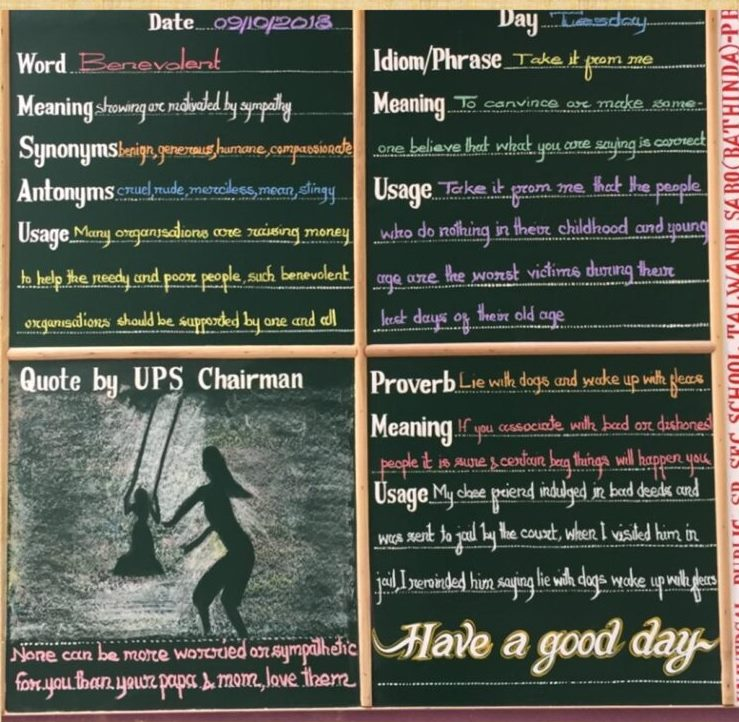 Date 09/10/2018
Word Benevolent
Meaning showing or motivated by sympathy
Synonyms benign, generous, humane, compassionate
Antonyms cruel, rude, merciless, mean, stingy
Usage Many organisations are raising money
to help the needy and poor people, such benevolent
organisations should be supported by one and all
Day Tuesday
Idiom/Phrase Take it from me
Meaning To convince or make some-
one believe that what you are saying is correct
Usage Take it from me that the people
who do nothing in their childhood and young
age are the worst victims during their
last days of their old age
Quote by UPS Chairman
None can be more worried or sympathetic
for you than your papa & mom, love them
Proverb Lie with dogs and wake up with fleas
Meaning If you associate with bad or dishonest
people it is sure & certain bag things will happen you
Usage My close friend indulged in bad deeds and
was sent to jail by the court, when I visited him in
jail I reminded him saying lie with dogs wake up with fleas
Have a good day
PUBLIC SR. SEC. SCHOOL TALWANDI SABO (BATHINDA)-PB